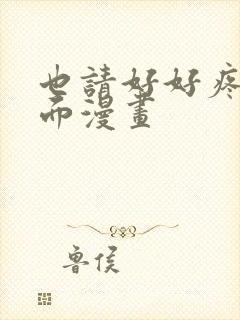 也請好好疼
而漫畫
魯侯